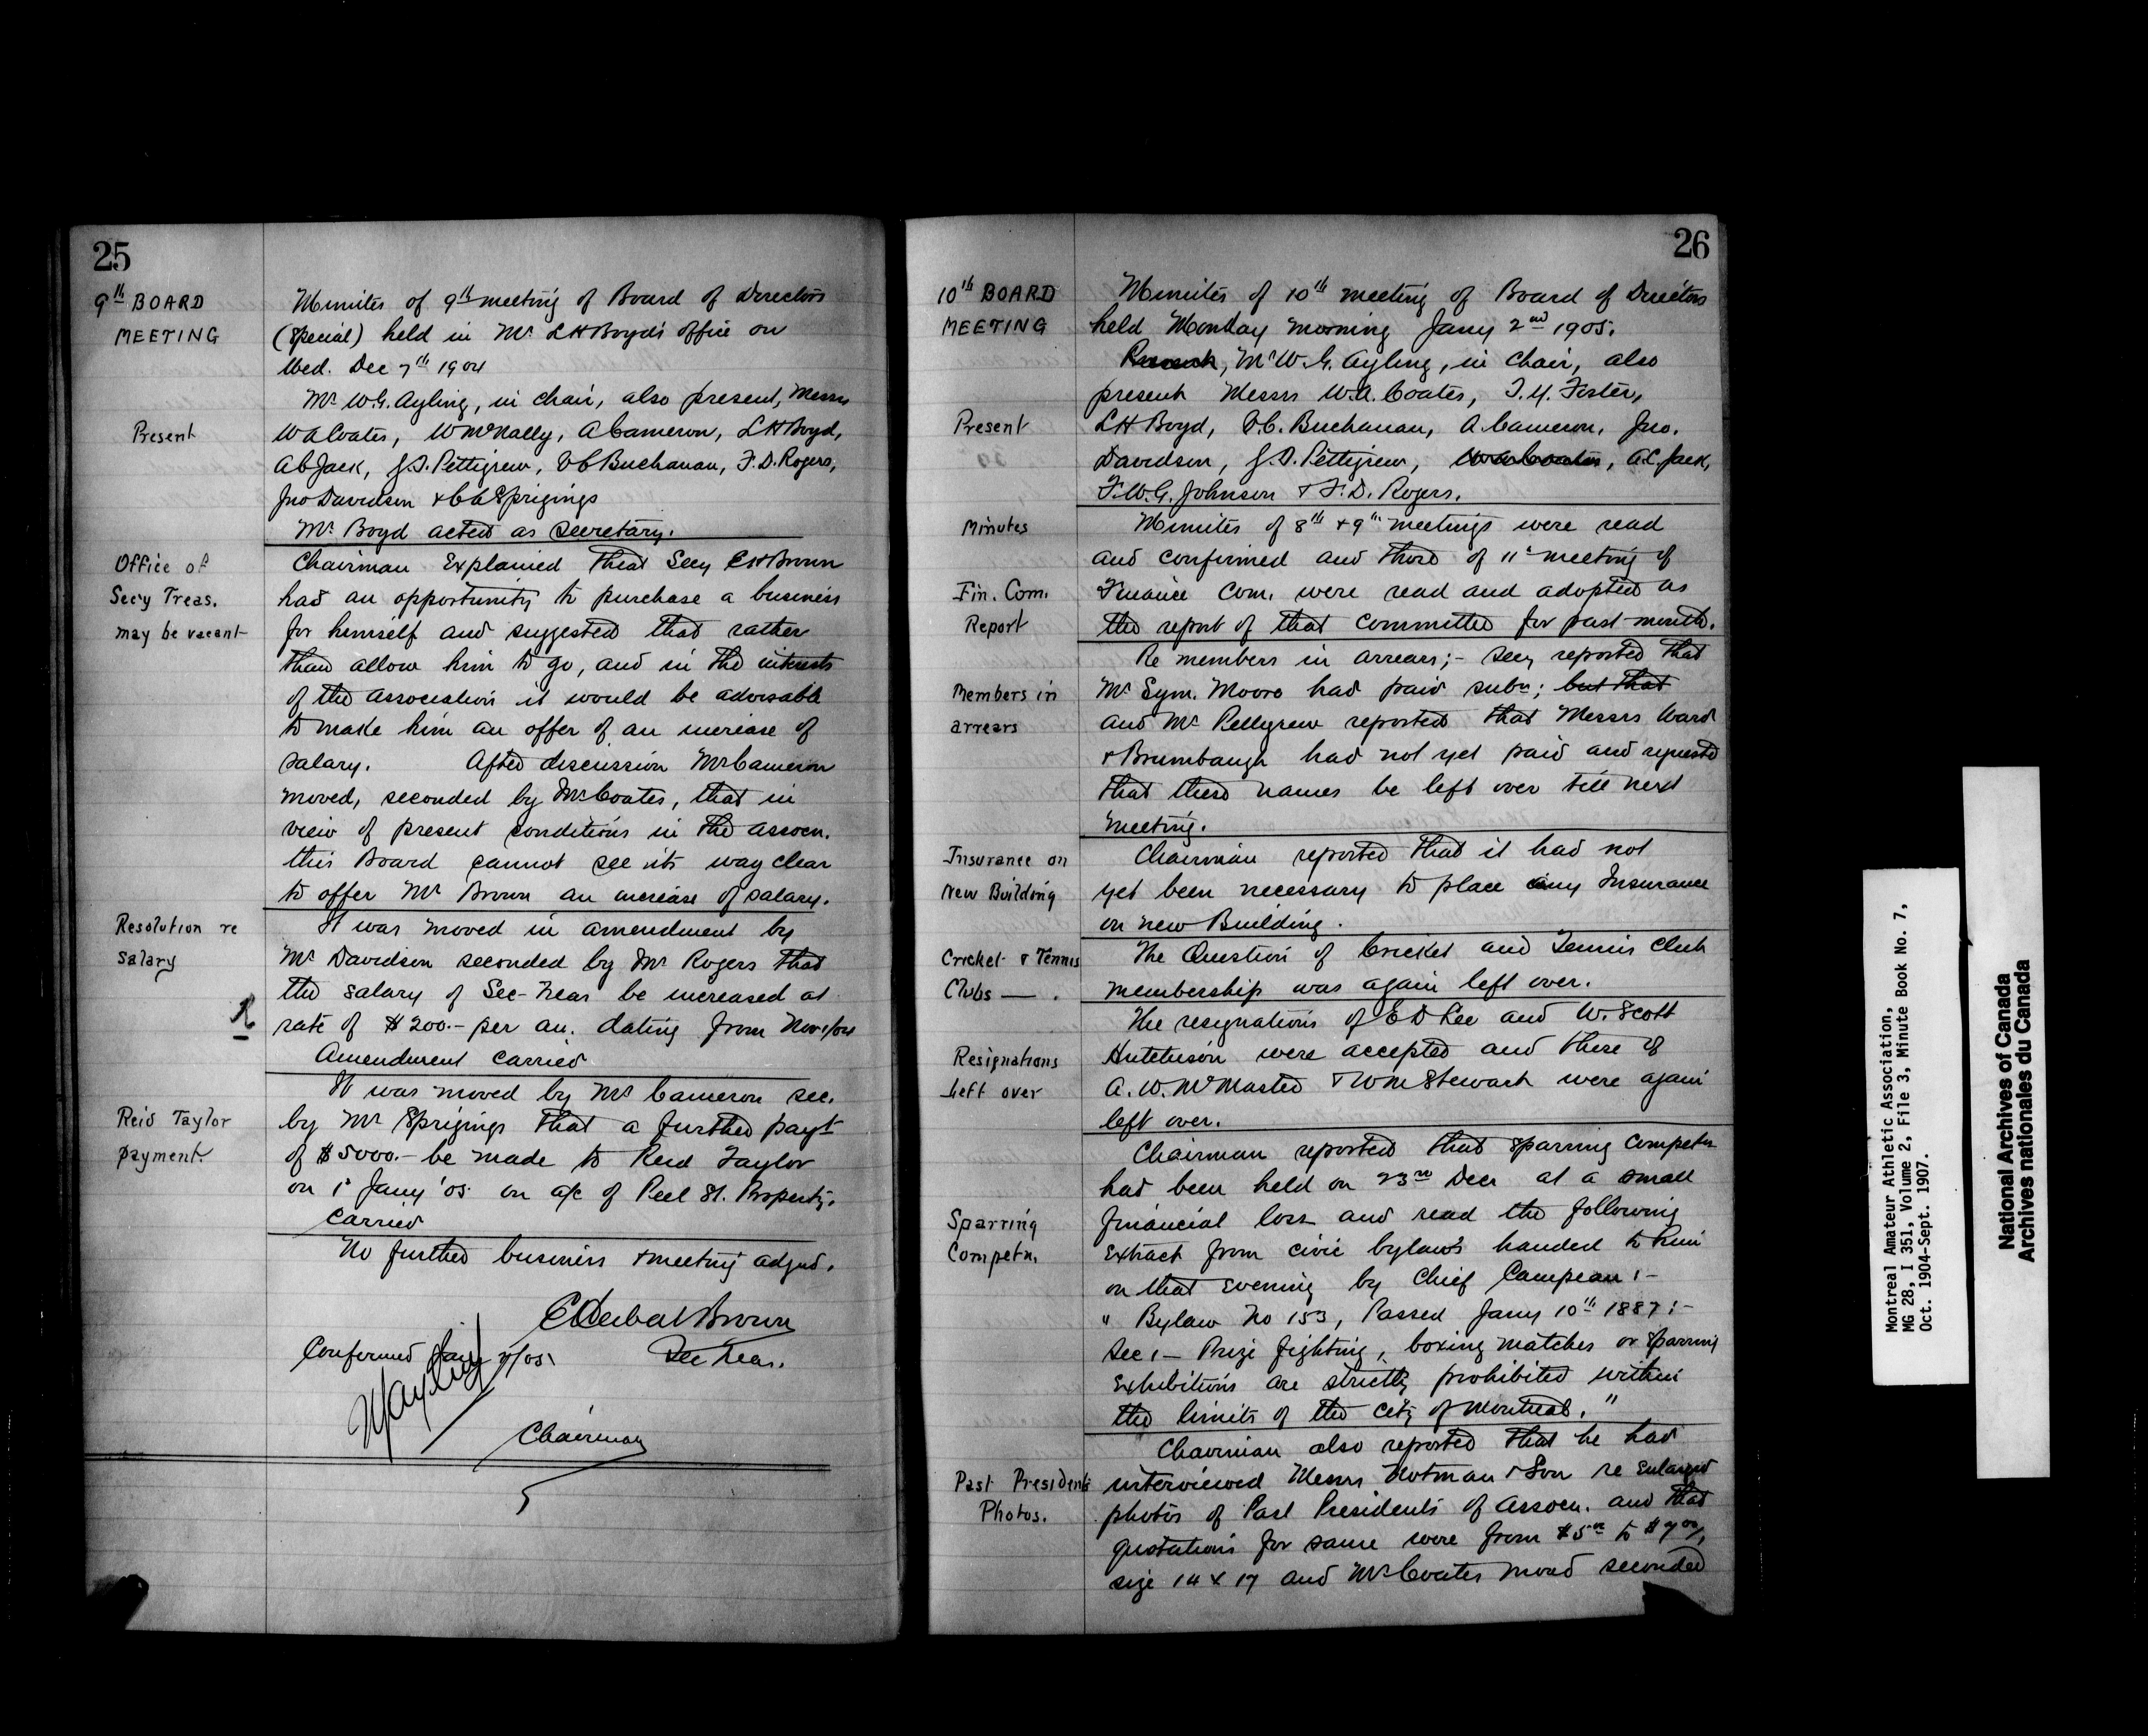 25
9th BOARD
MEETING
Minutes of 9th meeting of Board of Directors
(Special) held in Mr LH Boyd's office on
Wed. Dec 7th 1904
Mr W.G. Ayling, in chair, also present, Messrs
Present
WA Coates, W McNally, A Cameron, LH Boyd,
AC Jack, J.D. Pettigrew, VC Buchanan, F.D. Rogers,
Jno Davidson & CA Sprigings
Mr Boyd acted as Secretary.
Office of
Sec'y Treas.
may be vacant
Chairman explained that Secy EH Brown
had an opportunity to purchase a business
for himself and suggested that rather
than allow him to go, and in the interests
of the association it would be advisable
to make him an offer of an increase of
salary. After discussion Mr Cameron
moved, seconded by Mr Coates, that in
view of present conditions in the assocn.
this Board cannot see its way clear
to offer Mr Brown an increase of salary.
Resolution re
salary
It was moved in amendment by
Mr Davidson seconded by Mr Rogers that
the salary of Sec-Treas be increased at
R
rate of $200.- per an. dating from Nov 1/04
Amendment carried
Reid Taylor
payment.
It was moved by Mr Cameron sec.
by Mr Sprigings that a further payt
of $5000.- be made to Reid Taylor
on 1st Jany '05 on a/c of Peel St. Property.
Carried
No further business & meeting adjnd.
Brown
Sec Treas.
Confirmed Jany 2/05
W Ayling
Chairman
26
10th BOARD
MEETING
Minutes of 10th meeting of Board of Directors
held Monday morning Jany 2nd 1905.
Present, Mr W.G. Ayling, in Chair, also
present Messrs W.A. Coates, T.Y. Foster,
Present
LH Boyd, V.C. Buchanan, A. Cameron, Jno.
Davidson, J.D. Pettigrew, WA Coates, A.C. Jack,
F.W.G. Johnson & F.D. Rogers.
Minutes
Minutes of 8th & 9th meetings were read
and confirmed and those of 11th meeting of
Fin. Com.
Report
Finance Com. were read and adopted as
the report of that committee for past month.
Members in
arrears
Re members in arrears;- Secy reported that
Mr Sym. Moore had paid subn; but that
and Mr Pettigrew reported that Messrs Ward
& Brumbaugh had not yet paid and requested
that these names be left over till next
meeting.
Insurance on
New Building
Chairman reported that it had not
yet been necessary to place any Insurance
on new Building.
Cricket & Tennis
Clubs — .
The Question of Cricket and Tennis Club
membership was again left over.
Resignations
Left over
The resignations of E D Lee and W. Scott
Hutchison were accepted and those of
A. W. McMaster & Wm Stewart were again
left over.
Sparring
Competn.
Chairman reported that Sparring Competn
had been held on 23rd Decr at a small
financial loss and read the following
extract from civic bylaws handed to him
on that evening by Chief Campeau:-
" Bylaw No 153, Passed Jany 10th 1887:-
Sec 1- Prize fighting, boxing matches or sparring
exhibitions are strictly prohibited within
the limits of the City of Montreal."
Past Presidents
Photos.
Chairman also reported that he had
interviewed Messrs Notman & Son re enlarged
photos of Past Presidents of Assocn. and that
quotations for same were from $5.00 to $7.00,
size 14 x 17 and Mr Coates moved seconded
Montreal Amateur Athletic Association,
MG 28, I 351, Volume 2, File 3, Minute Book No. 7,
Oct. 1904-Sept. 1907.
National Archives of Canada
Archives nationales du Canada